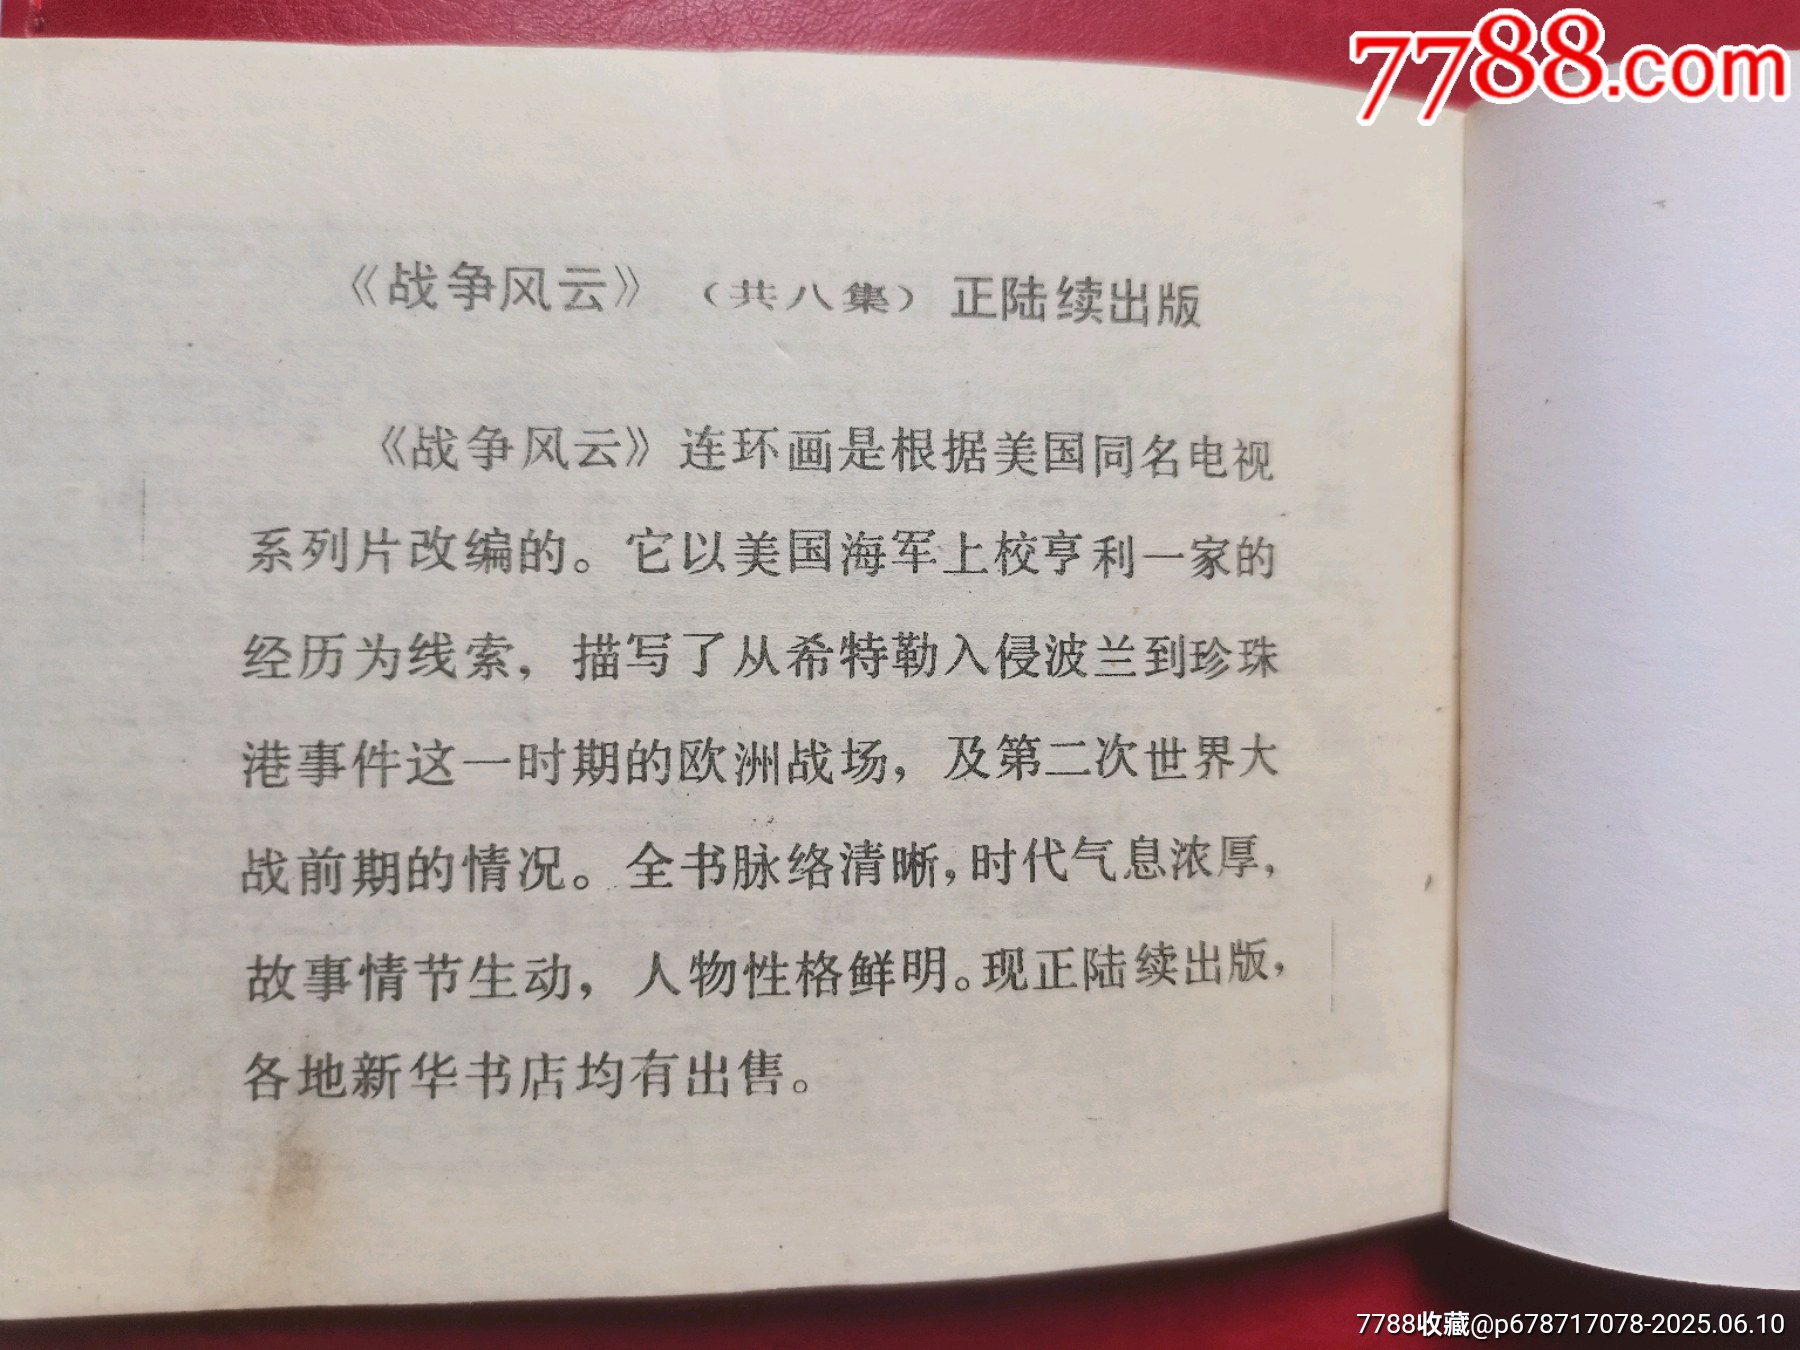 7788.com
《战争风云》（共八集）正陆续出版
《战争风云》连环画是根据美国同名电视
系列片改编的。它以美国海军上校亨利一家的
经历为线索，描写了从希特勒入侵波兰到珍珠
港事件这一时期的欧洲战场，及第二次世界大
战前期的情况。全书脉络清晰，时代气息浓厚，
故事情节生动，人物性格鲜明。现正陆续出版，
各地新华书店均有出售。
7788收藏@p678717078-2025.06.10